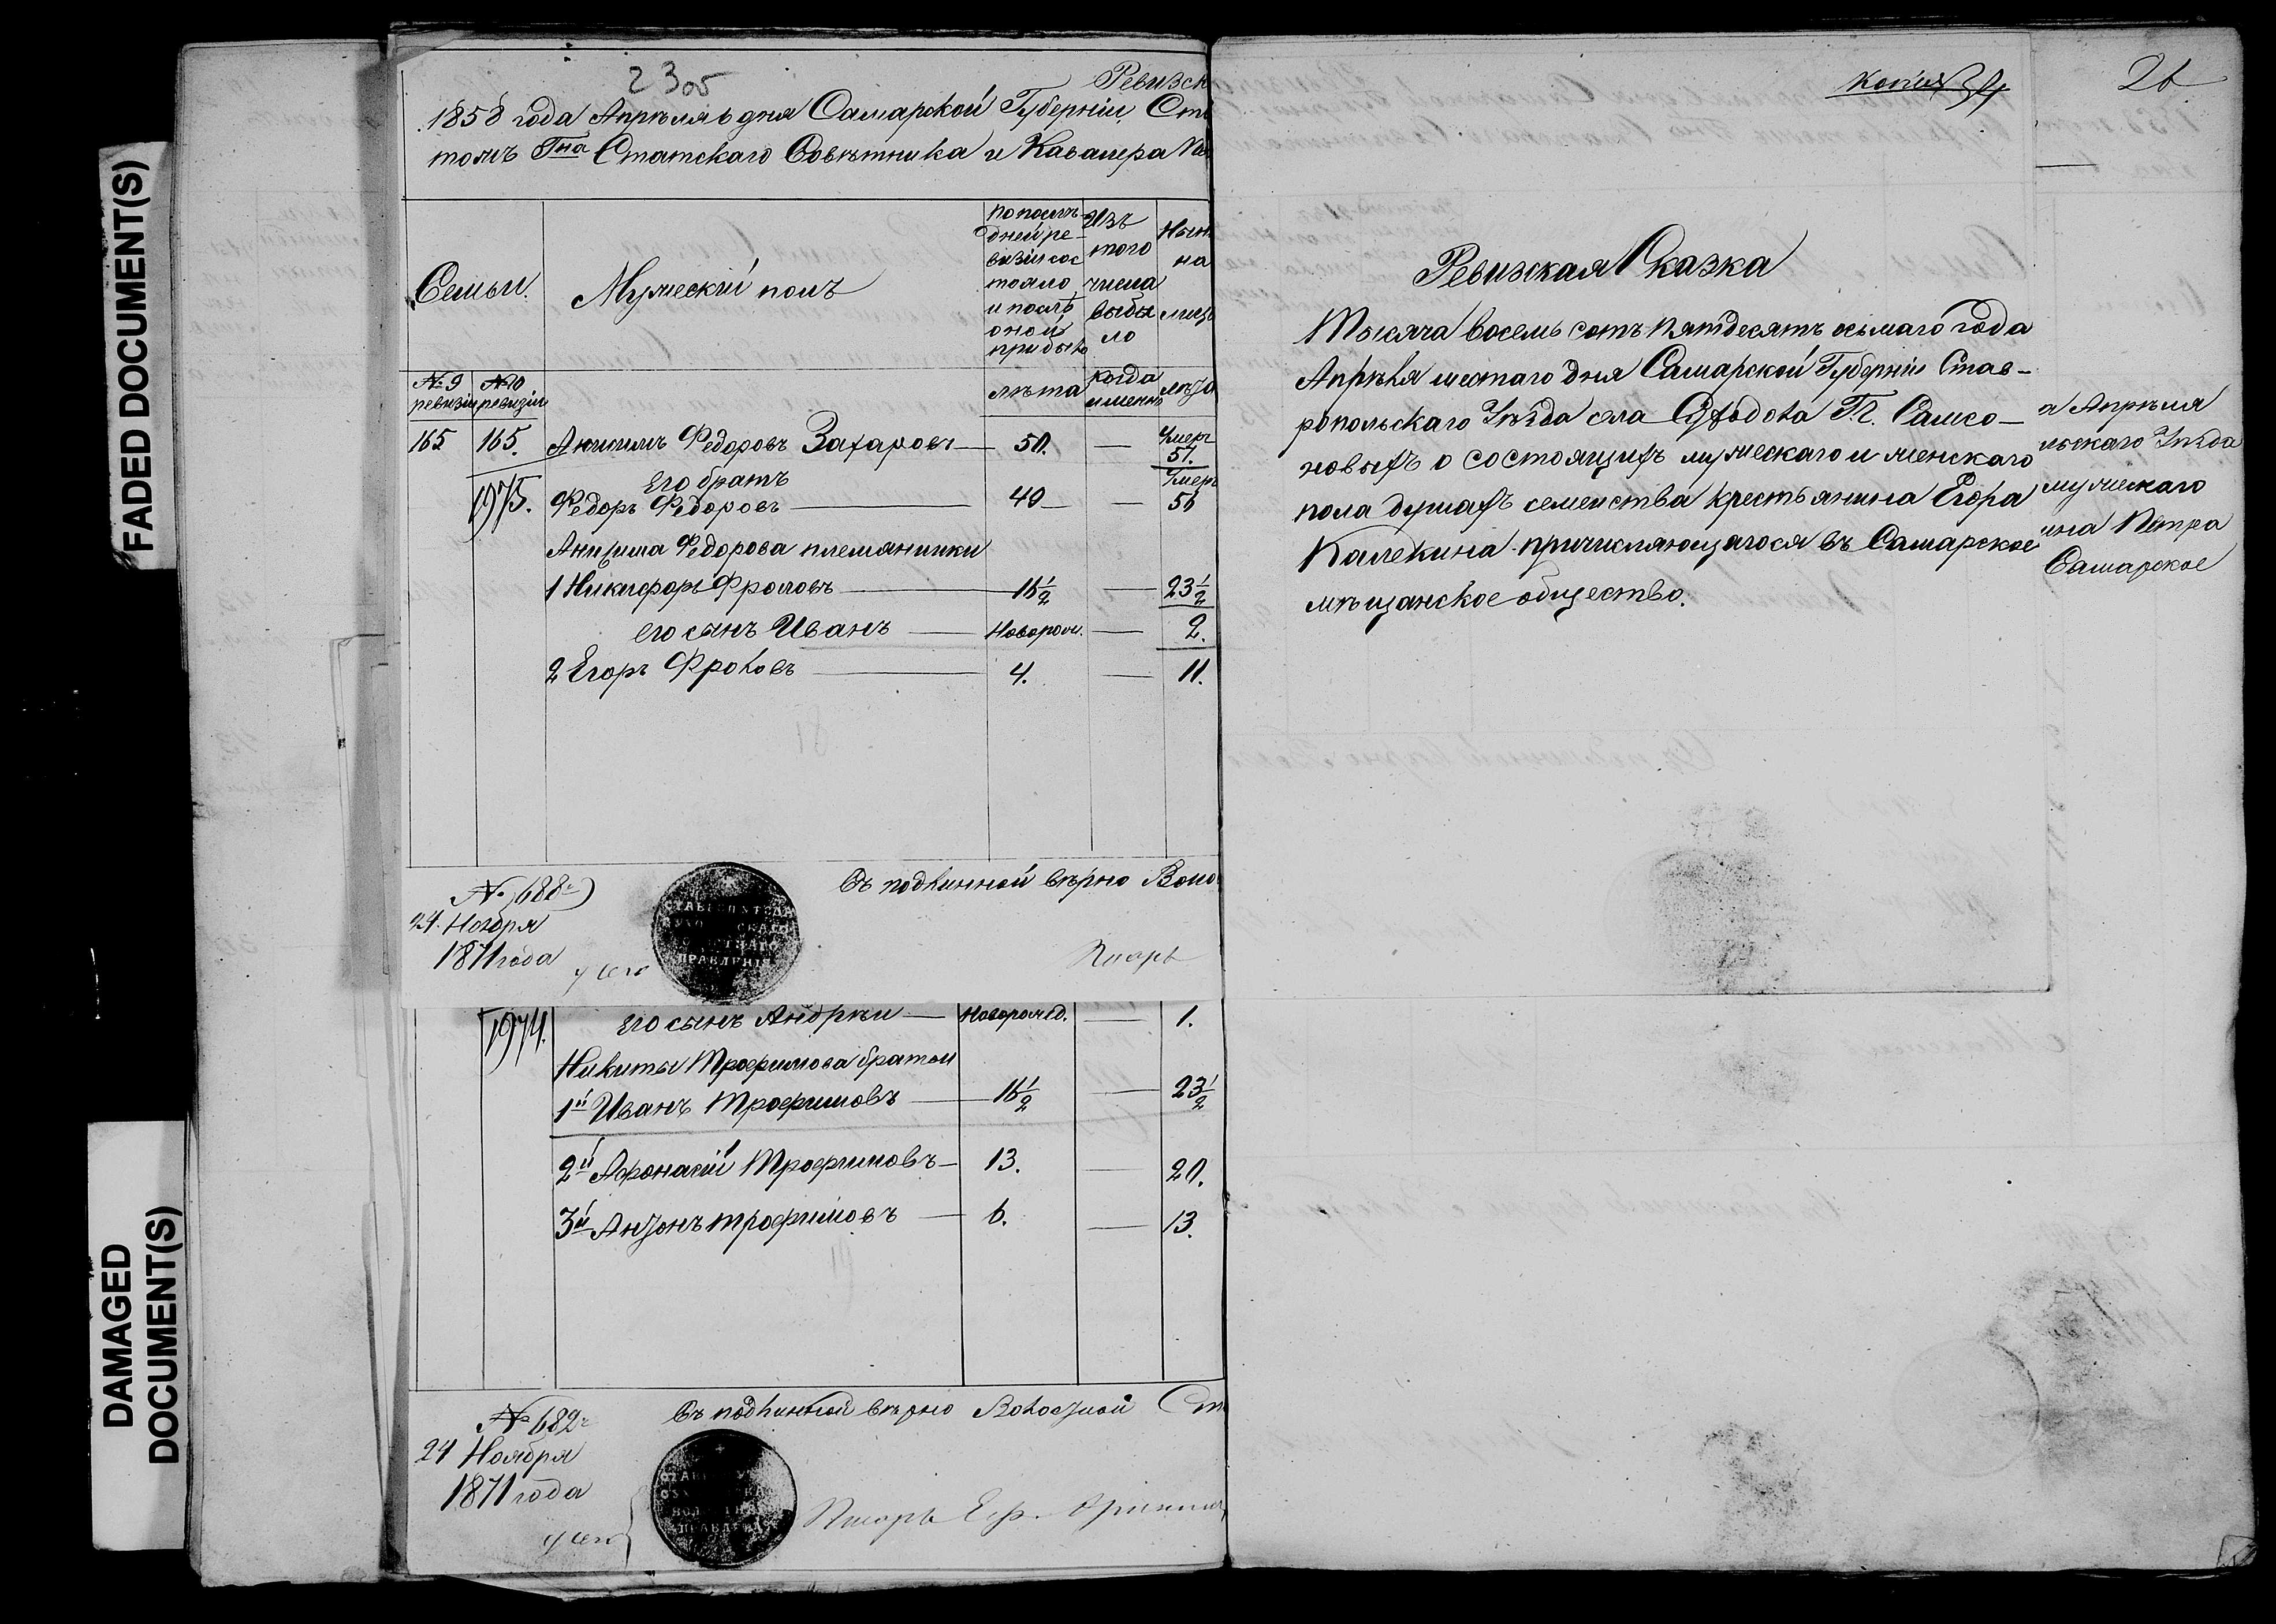 FADED DOCUMENT(S)
DAMAGED DOCUMENT(S)
23об
Ревизск
1858 года Апрѣля 6 дня Самарской Губерніи Ста
томъ Гна Статскаго Совѣтника и Кавалера
Семьи.
Мужескій полъ
По послѣ-
дней ре-
визіи сос
тояло
и послѣ
оной
прибыло
Изъ
того
числа
выбы
ло
Нынѣ
на
лицо
№ 9 ревизіи
№ 10 ревизіи
лѣта
когда
именно
лѣта
165 165. Анисимъ Федоровъ Захаровъ — 50. — Умеръ 57.
1975.
Его братъ
Федоръ Федоровъ — 49 — Умеръ 56
Анисима Федорова племянники
1 Никифоръ Фроловъ — 16½ — 23½
его сынъ Иванъ — Новорож. — 2.
2 Егоръ Фроловъ — 4. — 11.
№ 688
24. Ноября
1871 года
Съ подлинной вѣрно Воло
Писарь
СТАВРОПОЛ
СКАГО
ПРАВЛЕНІЯ
1974.
Его сынъ Андрѣй — Новорожд. — 1.
Никиты Трофимова братья
1й Иванъ Трофимовъ — 16½ — 23½
2й Афонасій Трофимовъ — 13. — 20.
3й Антонъ Трофимовъ — 6. — 13.
№ 689
24 Ноября
1871 года
Съ подлинной вѣрно Волостной Ст
Писарь Еф.
Копия
26
Ревизская Сказка
Тысяча восемь сотъ пятдесятъ осьмаго года
Апрѣля шестаго дня Самарской Губерніи Став-
ропольскаго Уѣзда села Г.г. Самсо-
новыхъ о состоящихъ мужескаго и женскаго
пола душахъ семейства крестьянина Егора
Калекина причисляющагося въ Самарское
мѣщанское общество.
а Апрѣля
льскаго Уѣзда
мужескаго
ина Петра
Самарское